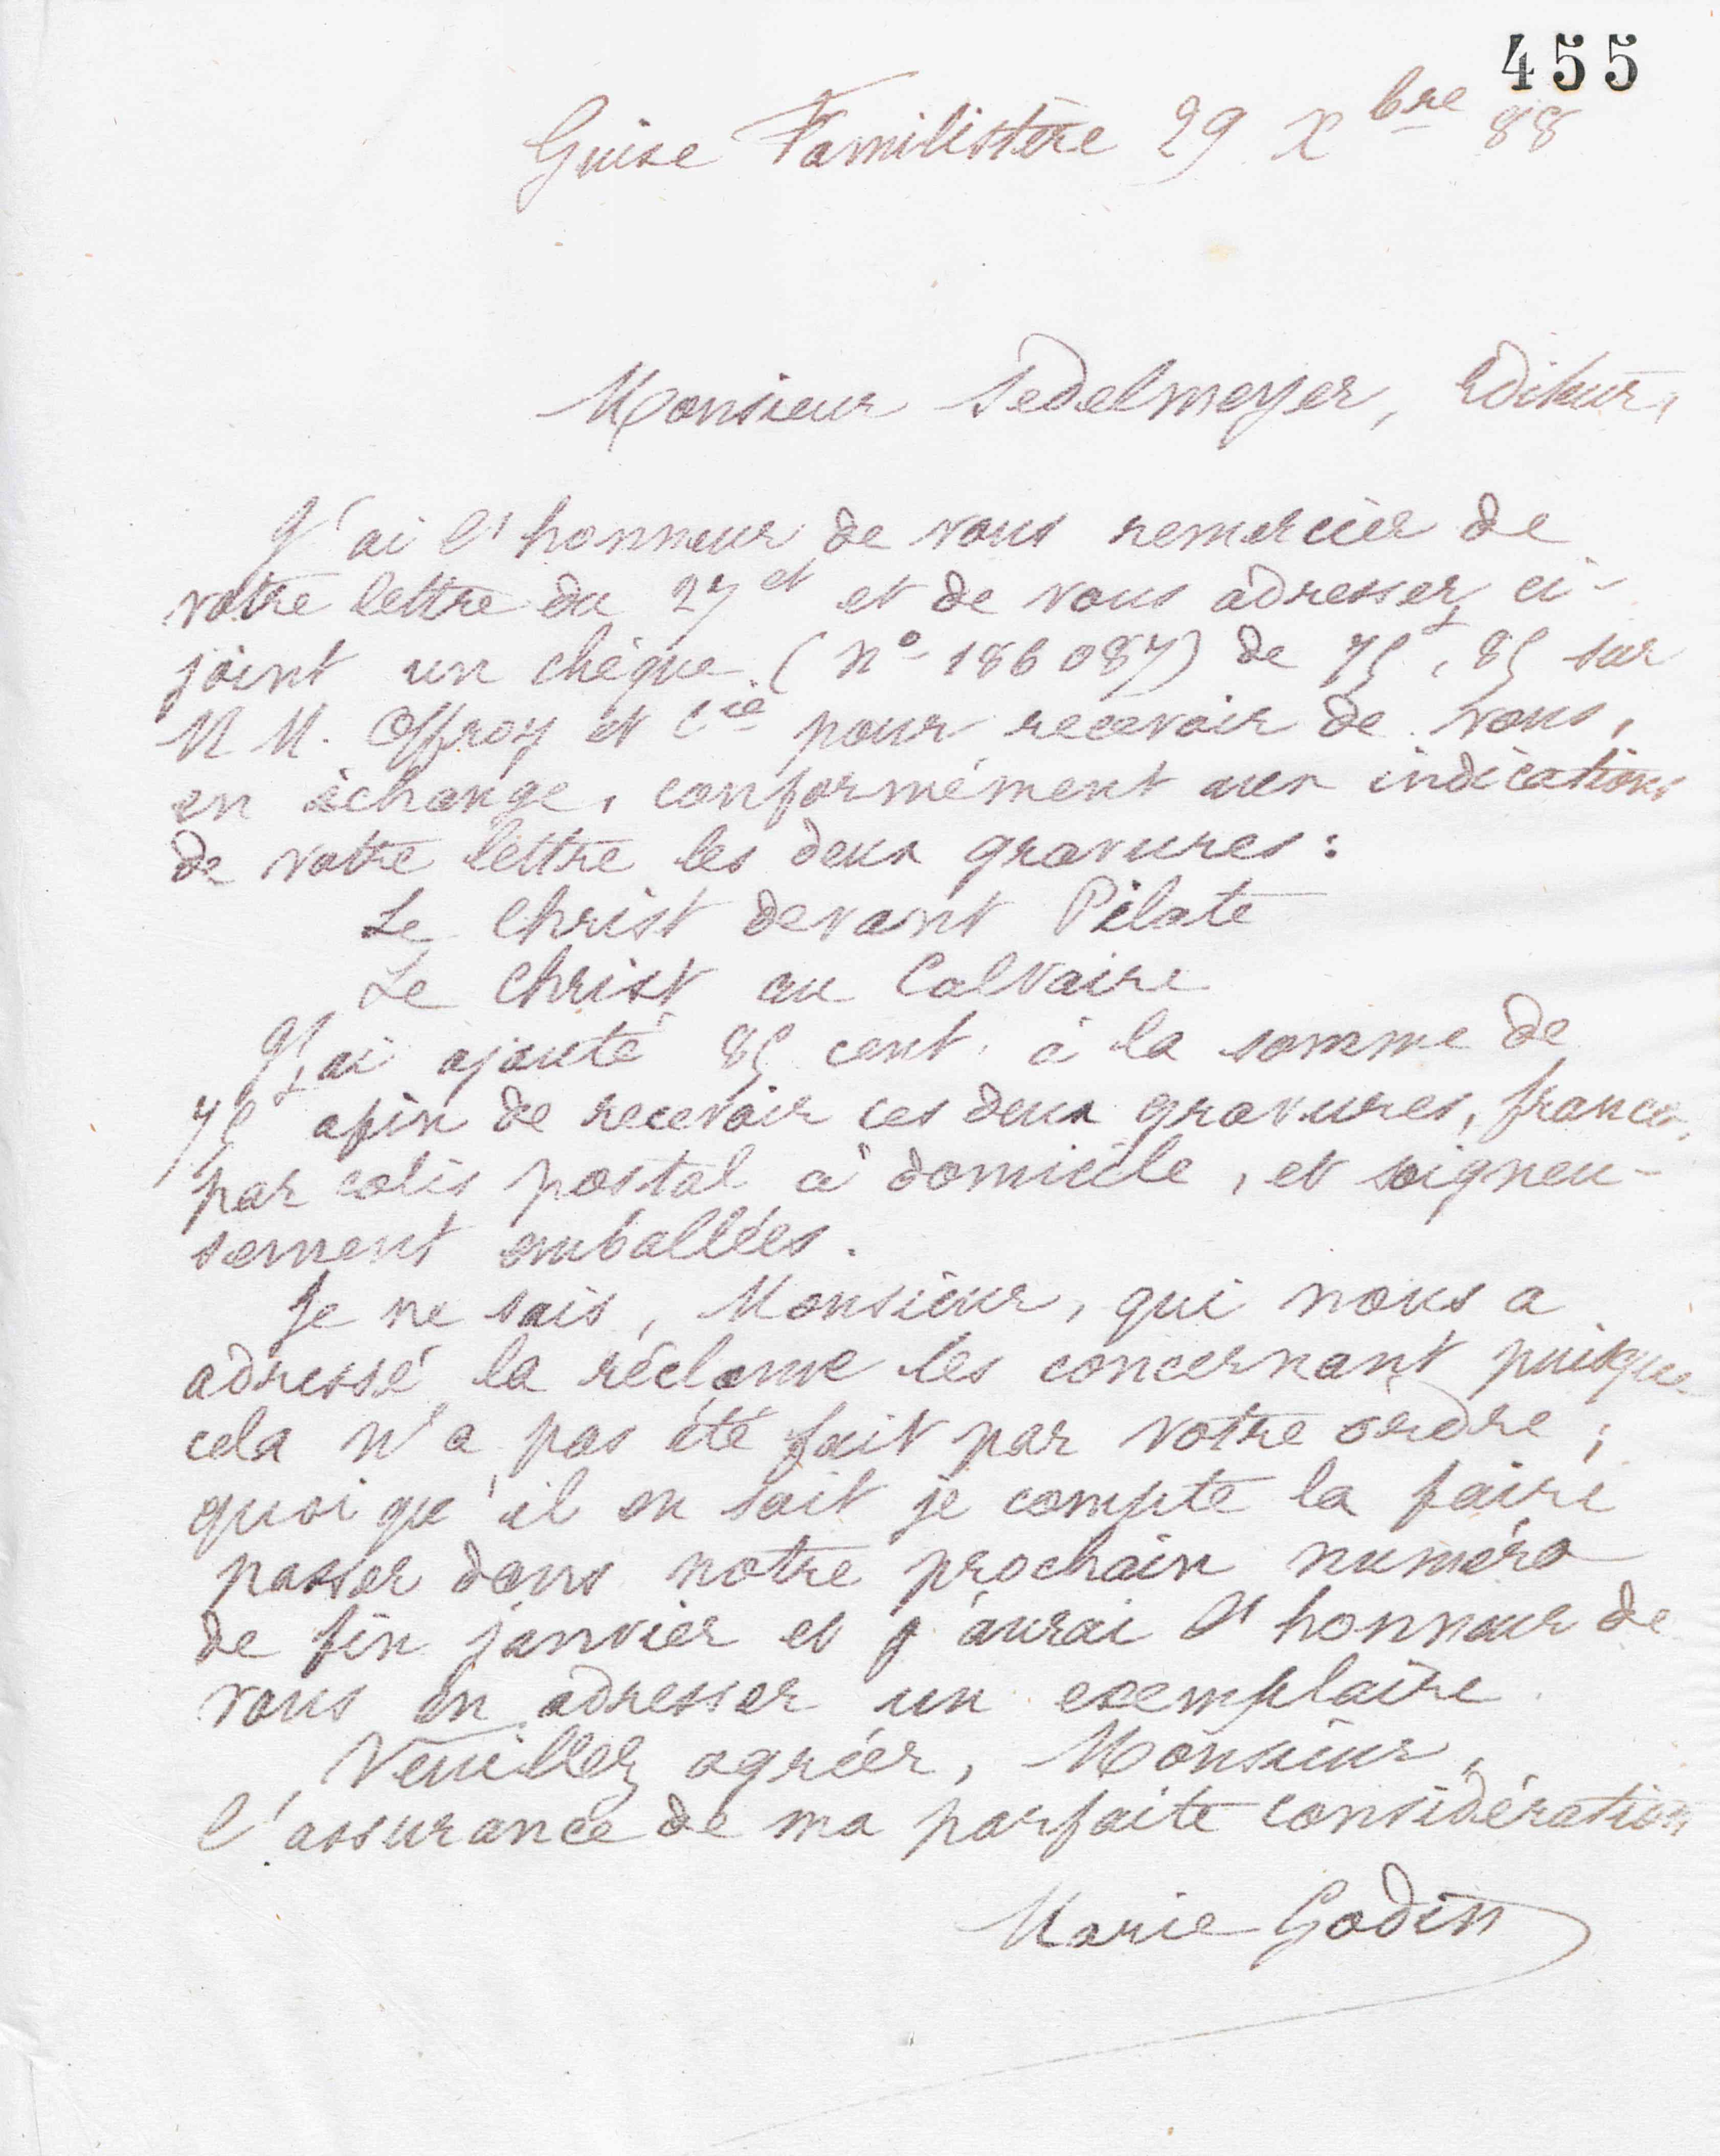 455
Guise Familistère 29 Xbre 88
Monsieur Sedelmeyer, Editeur,
J'ai l'honneur de vous remercier de
votre lettre du 27 ct et de vous adresser ci-
joint un chèque (n° 186087) de 75f,85 sur
M M. Offroy et Cie pour recevoir de vous,
en échange, conformément aux indications
de votre lettre les deux gravures :
Le Christ devant Pilate
Le Christ au Calvaire
J'ai ajouté 85 cent. à la somme de
75f afin de recevoir ces deux gravures, franco,
par colis postal à domicile, et soigneu-
sement emballées.
Je ne sais, Monsieur, qui nous a
adressé la réclame les concernant puisque
cela n'a pas été fait par votre ordre ;
quoi qu'il en soit je compte la faire
passer dans notre prochain numéro
de fin janvier et j'aurai l'honneur de
vous en adresser un exemplaire.
Veuillez agréer, Monsieur,
l'assurance de ma parfaite considération
Marie Godin